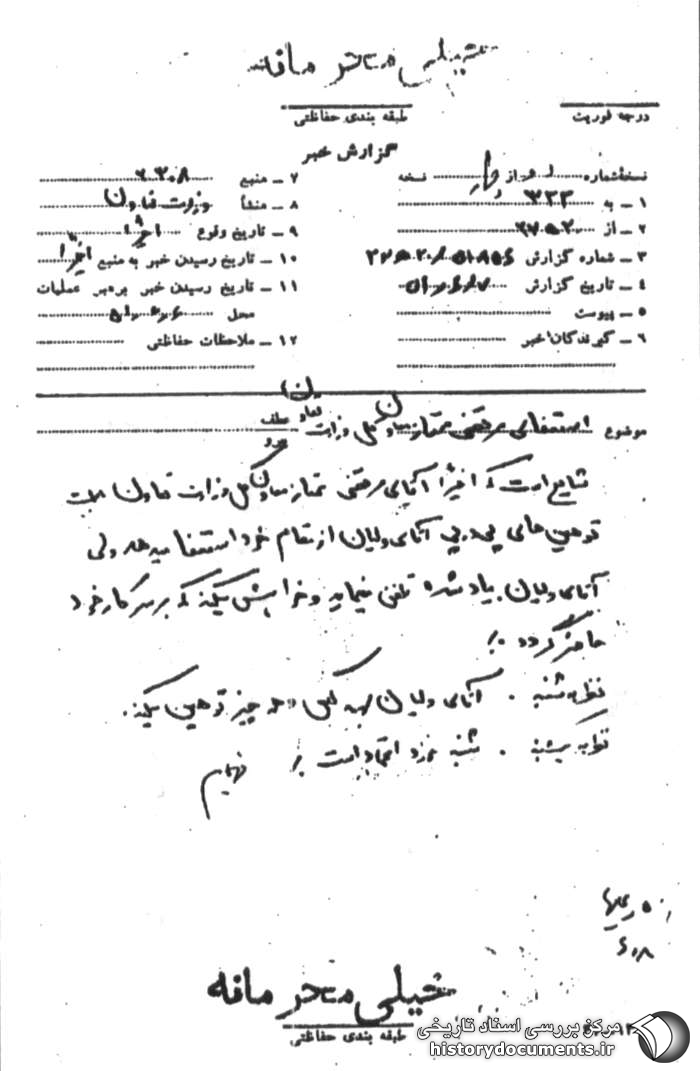 خیلی محرمانه
طبقه بندی حفاظتی
درجه فوریت
گزارش خبر
نسخه‌شماره از چهار نسخه
۱ - به ۳۳۳
۲ - از ۲۷ه۲۰
۳ - شماره گزارش
۴ - تاریخ گزارش
۵ - پیوست
۶ - گیرندگان خبر
۷ - منبع ۶۳۰۸
۸ - منشأ وزارت تعاون
۹ - تاریخ وقوع اخیراً
۱۰ - تاریخ رسیدن خبر به منبع اخیراً
۱۱ - تاریخ رسیدن خبر برهبر عملیات
محل
۱۲ - ملاحظات حفاظتی
موضوع استعفای مرتضی ممتاز معاون کل وزارت تعاون
عطف
پیرو
شایع است که اخیراً آقای مرتضی ممتاز معاون کل وزارت تعاون بعلت
توهین های پی در پی آقای ولیان از مقام خود استعفا میدهد ولی
آقای ولیان بیاد شده تلفن مینماید و خواهش میکند که بر سر کار خود
حاضر گردد
نظریه شنبه . آقای ولیان بهمه کس و همه چیز توهین میکند .
نظریه یکشنبه . شنبه مورد اعتماد است
خیلی محرمانه
طبقه بندی حفاظتی
مرکز بررسی اسناد تاریخی
historydocuments.ir